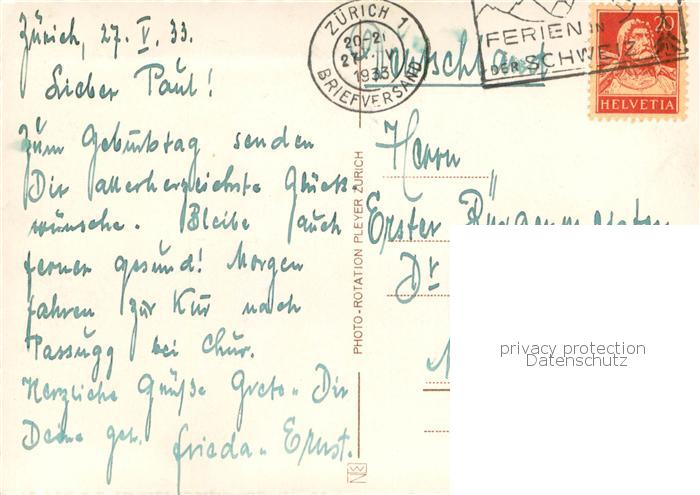 Zürich, 27. V. 33.
Lieber Paul!
Zum Geburtstag senden
Dir allerherzlichste Glück-
wünsche. Bleibe auch
ferner gesund! Morgen
fahren zur Kur nach
Passugg bei Chur.
Herzliche Grüße Greto u. Dir
Deine gel. Frieda u. Ernst.
PHOTO-ROTATION PLEYER ZÜRICH
ZÜRICH 1
20-21
1933
BRIEFVERSAND
FERIEN IN
DER SCHWEIZ
20
HELVETIA
Deutschland
Herrn
Erster Bürgermeister
Dr
privacy protection
Datenschutz